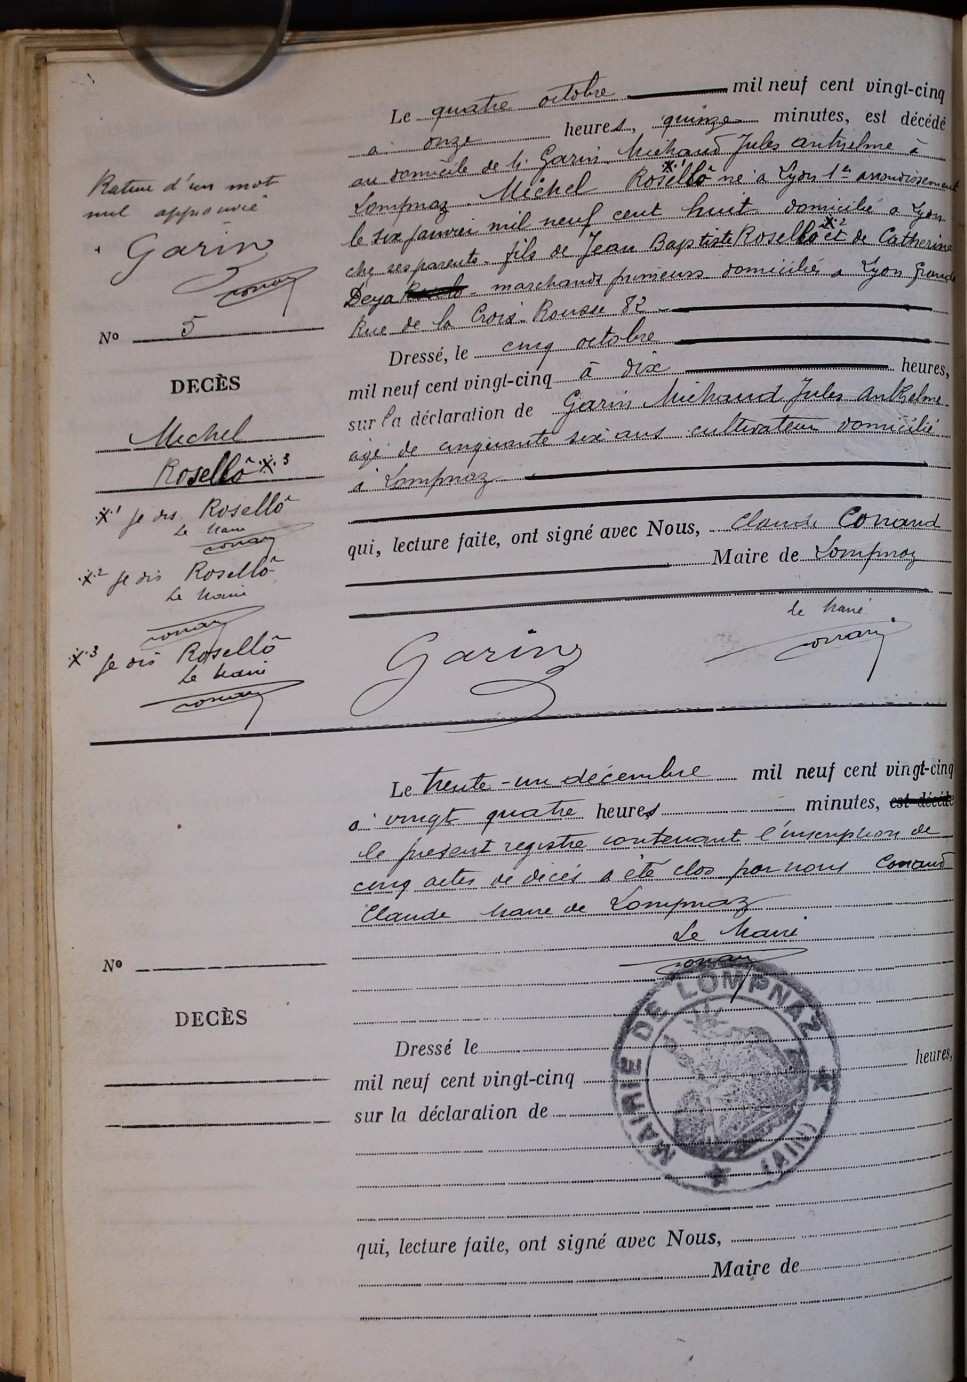 Le quatre octobre mil neuf cent vingt-cinq
à onze heures, quinze minutes, est décédé
au domicile de Garin Michaud Jules Anthelme à
Lompnaz Michel Rosellô x.1 né à Lyon 1er arrondissement
le six janvier mil neuf cent huit domicilié à Lyon
chez ses parents - fils de Jean Baptiste Rosellô x.2 et de Catherine
Deya marchands primeurs domiciliés à Lyon Grande
Rue de la Croix-Rousse 82
Dressé, le cinq octobre
mil neuf cent vingt-cinq à dix heures,
sur la déclaration de Garin Michaud Jules Anthelme
agé de cinquante six ans cultivateur domicilié
à Lompnaz
qui, lecture faite, ont signé avec Nous, Claude Conand
Maire de Lompnaz
Garin
le Maire
Conand
Rature d'un mot
nul approuvé
Garin
Conand
No 5
DECÈS
Michel
Rosellô x.3
x.1 je dis Rosellô
Le Maire
Conand
x.2 je dis Rosellô
Le Maire
Conand
x.3 je dis Rosellô
Le Maire
Conand
Le trente-un décembre mil neuf cent vingt-cinq
à vingt quatre heures minutes, est décédé
le présent registre contenant l'inscription de
cinq actes de décès a été clos par nous Conand
Claude Maire de Lompnaz
Le Maire
Conand
MAIRIE DE LOMPNAZ
(AIN)
No
DECÈS
Dressé le
mil neuf cent vingt-cinq heures,
sur la déclaration de
qui, lecture faite, ont signé avec Nous,
Maire de